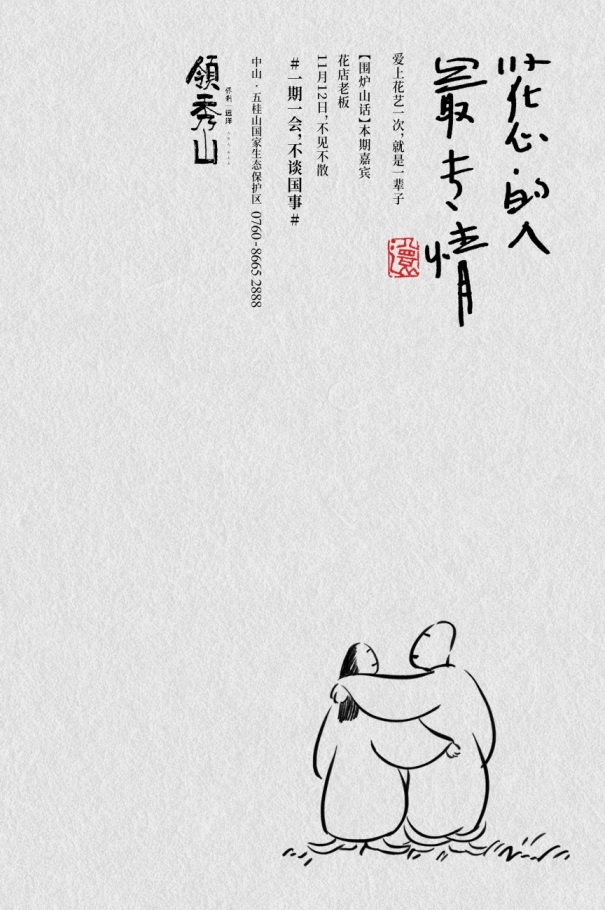 花心的人
最专情
爱上花艺一次，就是一辈子
【围炉山话】本期嘉宾
花店老板
11月12日，不见不散
#一期一会，不谈国事#
中山·五桂山国家生态保护区 0760-8665 2888
保利 远洋
领秀山